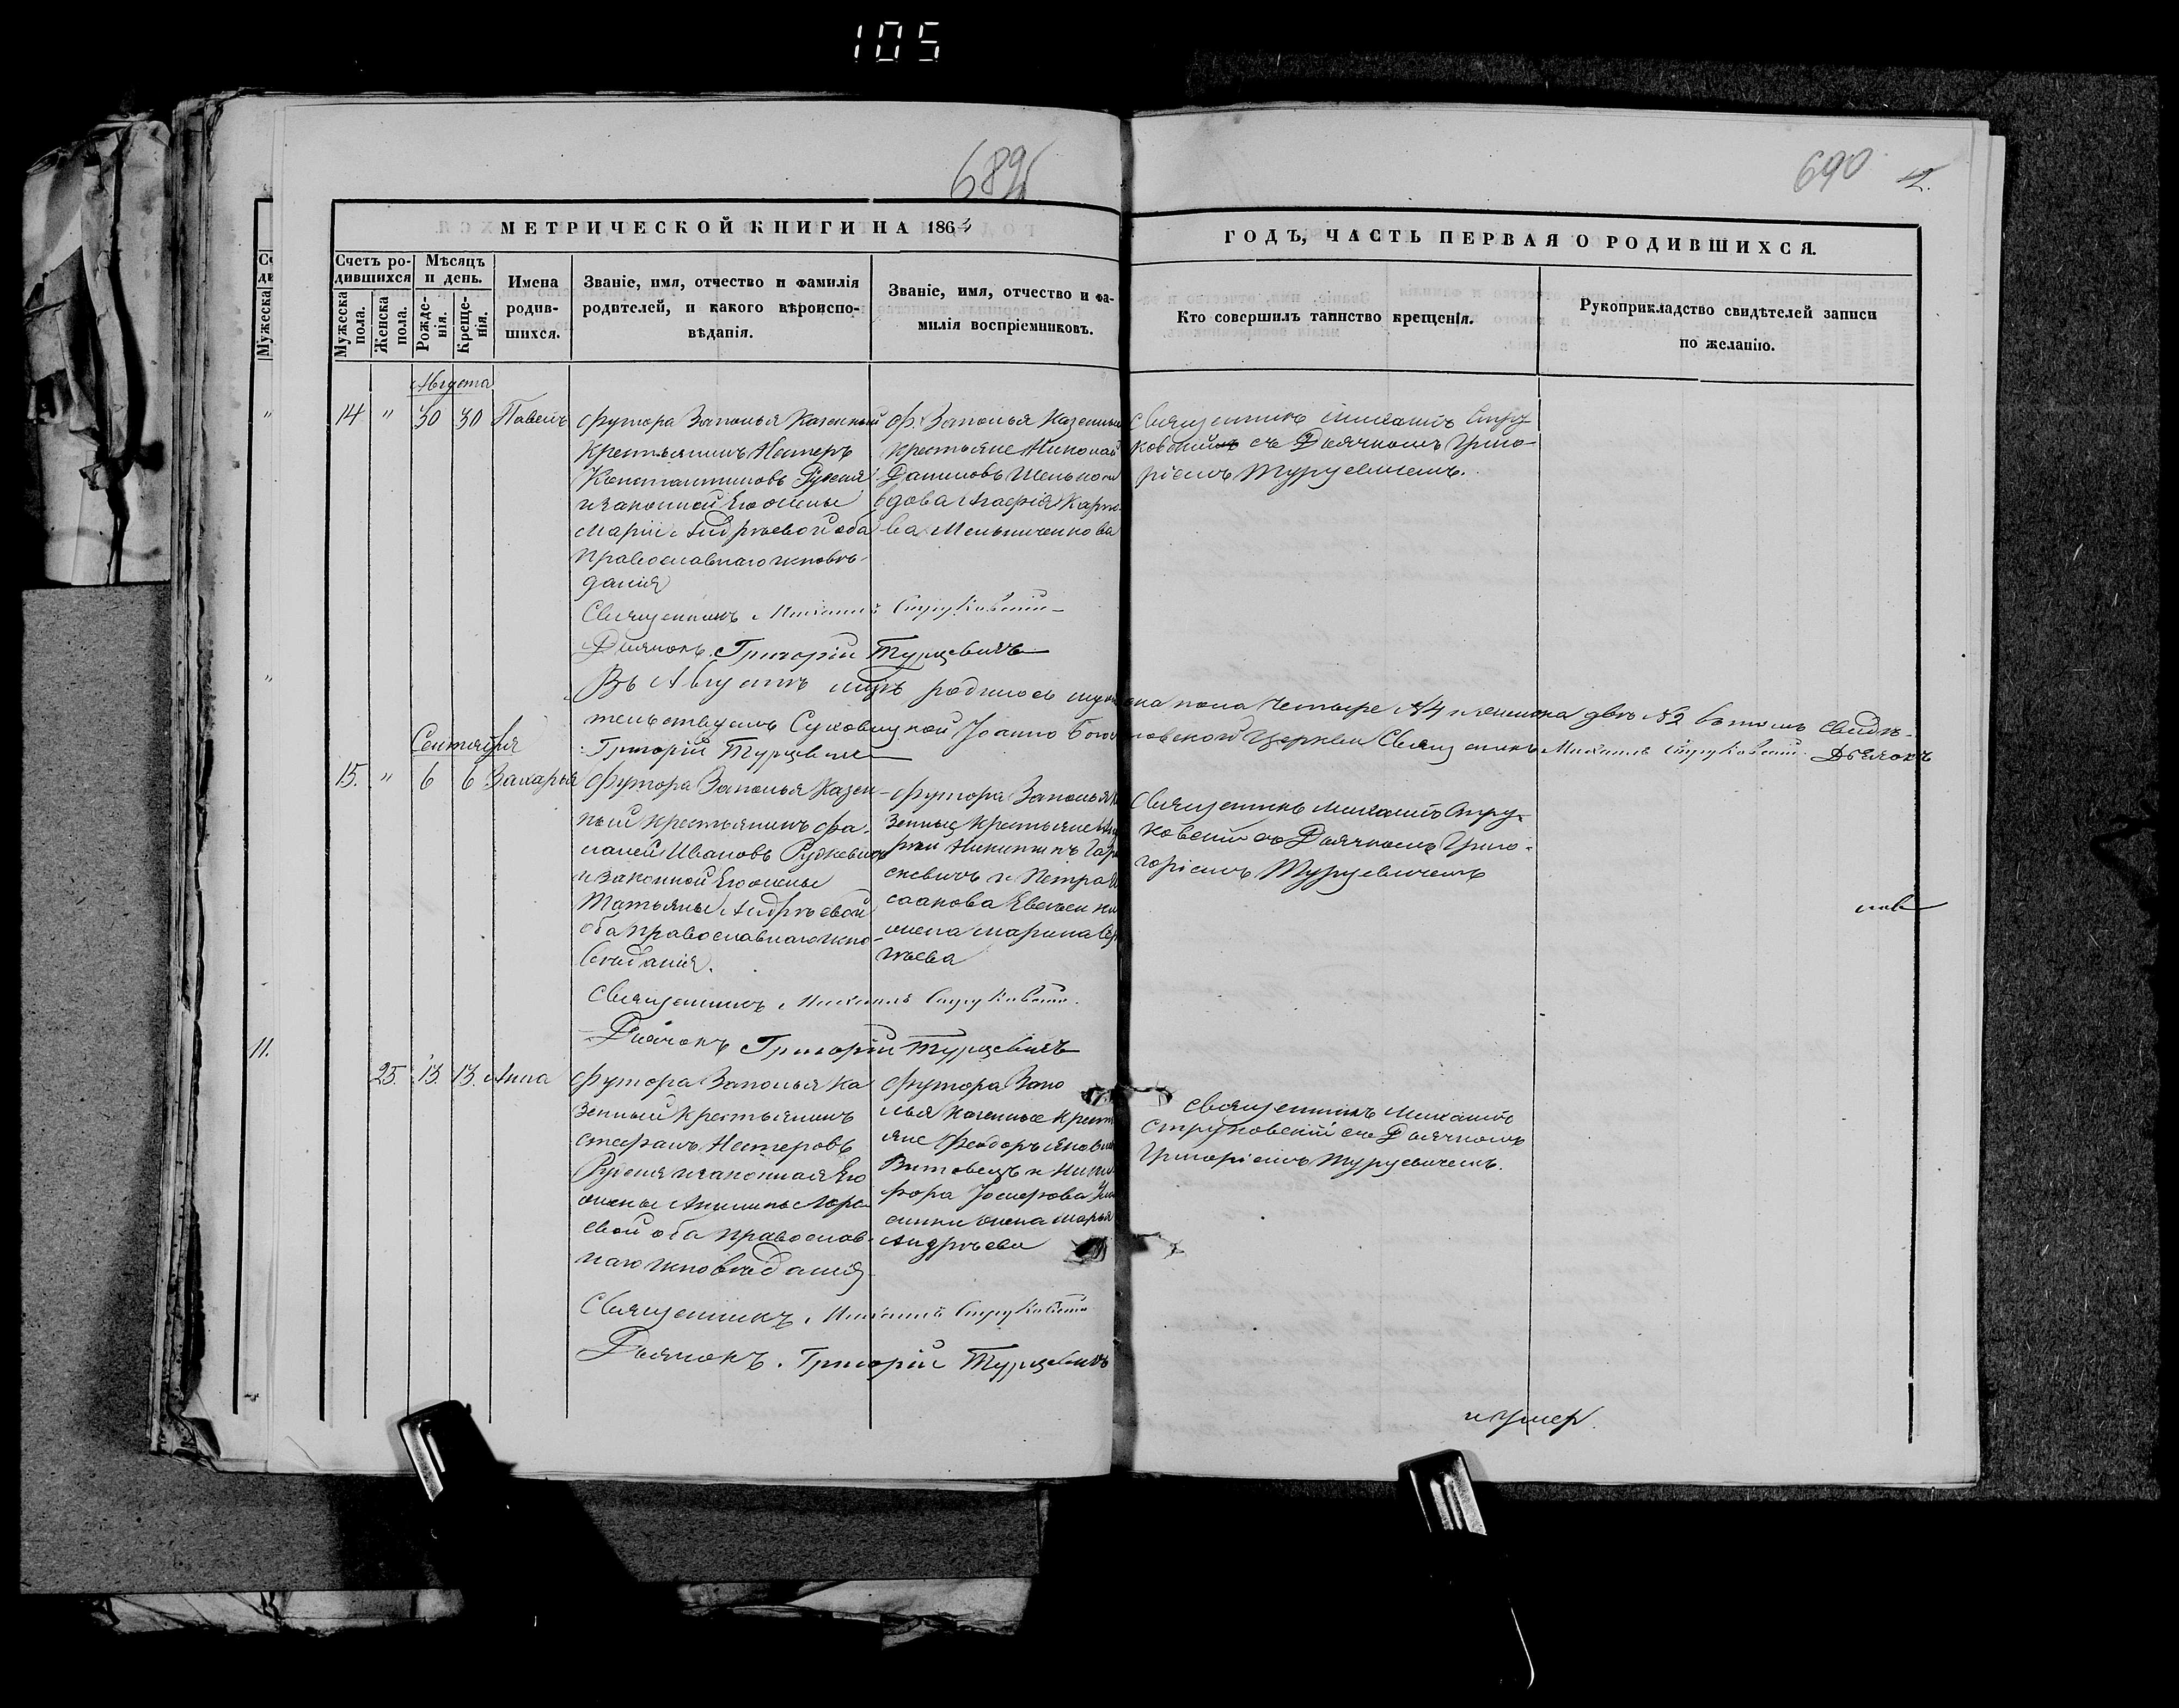 105
689
690
12.
МЕТРИЧЕСКОЙ КНИГИ НА 186
ГОДЪ, ЧАСТЬ ПЕРВАЯ О РОДИВШИХСЯ.
Счетъ ро-
дившихся
Мужеска
пола.
Женска
пола.
Мѣсяцъ
и день.
Рожде-
нія.
Креще-
нія.
Имена
родив-
шихся.
Званіе, имя, отчество и фамилія
родителей, и какого вѣроиспо-
вѣданія.
Званіе, имя, отчество и фа-
милія воспріемниковъ.
Кто совершилъ таинство крещенія.
Рукоприкладство свидѣтелей записи
по желанію.
Мужеска
Августа
14 " 30 30 Павелъ
футора Заполья Казенный
Крестьянинъ Нестеръ
Константиновъ
и законной Его жены
Маріи Андрѣевой оба
Православнаго исповѣ-
данія
ф. Заполья Казенные
крестьяне Николай
Даниловъ
вдова Агафія Карпо-
ва Мельниченкова
Священникъ Михаилъ Стру
ковскій съ Дьячкомъ Григо-
ріемъ Турцевичемъ.
Священникъ Михаилъ Струковскій
Дьячокъ Григорій Турцевичъ
Въ Августѣ родилось мужеска пола четыре №4 и женска двѣ №2 въ томъ свидѣ-
тельствуемъ Суховицкой Іоанно Богословской Церкви Священникъ Михаилъ Струковскій Дьячокъ
Григорій Турцевичъ
Сентября
15. " 6 6 Захарья
футора Заполья Казен-
ный крестьянинъ Афа-
насій Ивановъ Рудкевичъ
и законной Его жены
Татьяны Андрѣевой
оба православнаго испо-
вѣданія.
футора Заполья Ка
зенные крестьяне
Никитинъ
и Петра
жена Марина
Священникъ Михаилъ Стру-
ковскій съ Дьячкомъ Григо-
горіемъ Турцевичемъ
Священникъ Михаилъ Струковскій
Дьячокъ Григорій Турцевичъ
11.
25. 13. 13. Анна
футора Заполья Ка
зенный крестьянинъ
Стефанъ Нестеровъ
и законная Его
жены
оба православ-
наго исповѣданія
футора Запо
лья Казенные крестья
яне Феодоръ
Витовецъ и Ники
фора Іосифова
жена Марья
Андрѣева
Священникъ Михаилъ
Струковскій съ Дьячкомъ
Григоріемъ Турцевичемъ.
Священникъ Михаилъ Струковскій
Дьячокъ. Григорій Турцевичъ
и умер.